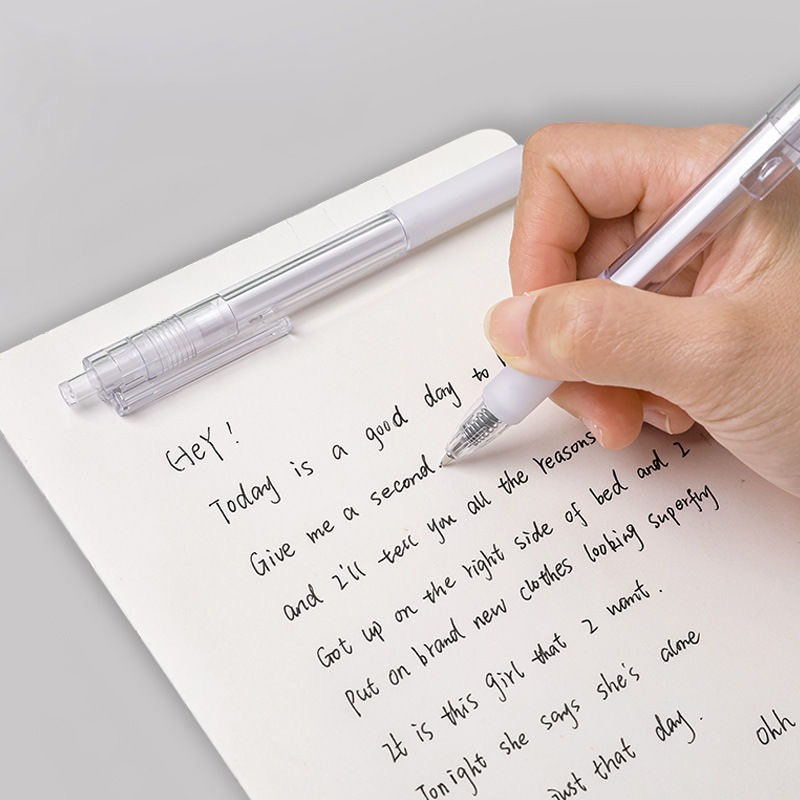 HeY!
Today is a good day to
Give me a second.
and I'll tell you all the reasons
Got up on the right side of bed and I
Put on brand new clothes looking superfly
It is this girl that I want.
Tonight she says she's alone
just that day. ohh